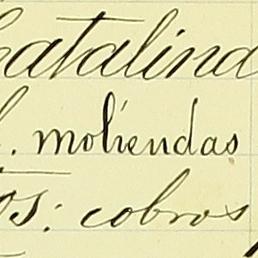 Catalina
. moliendas
os: cobros